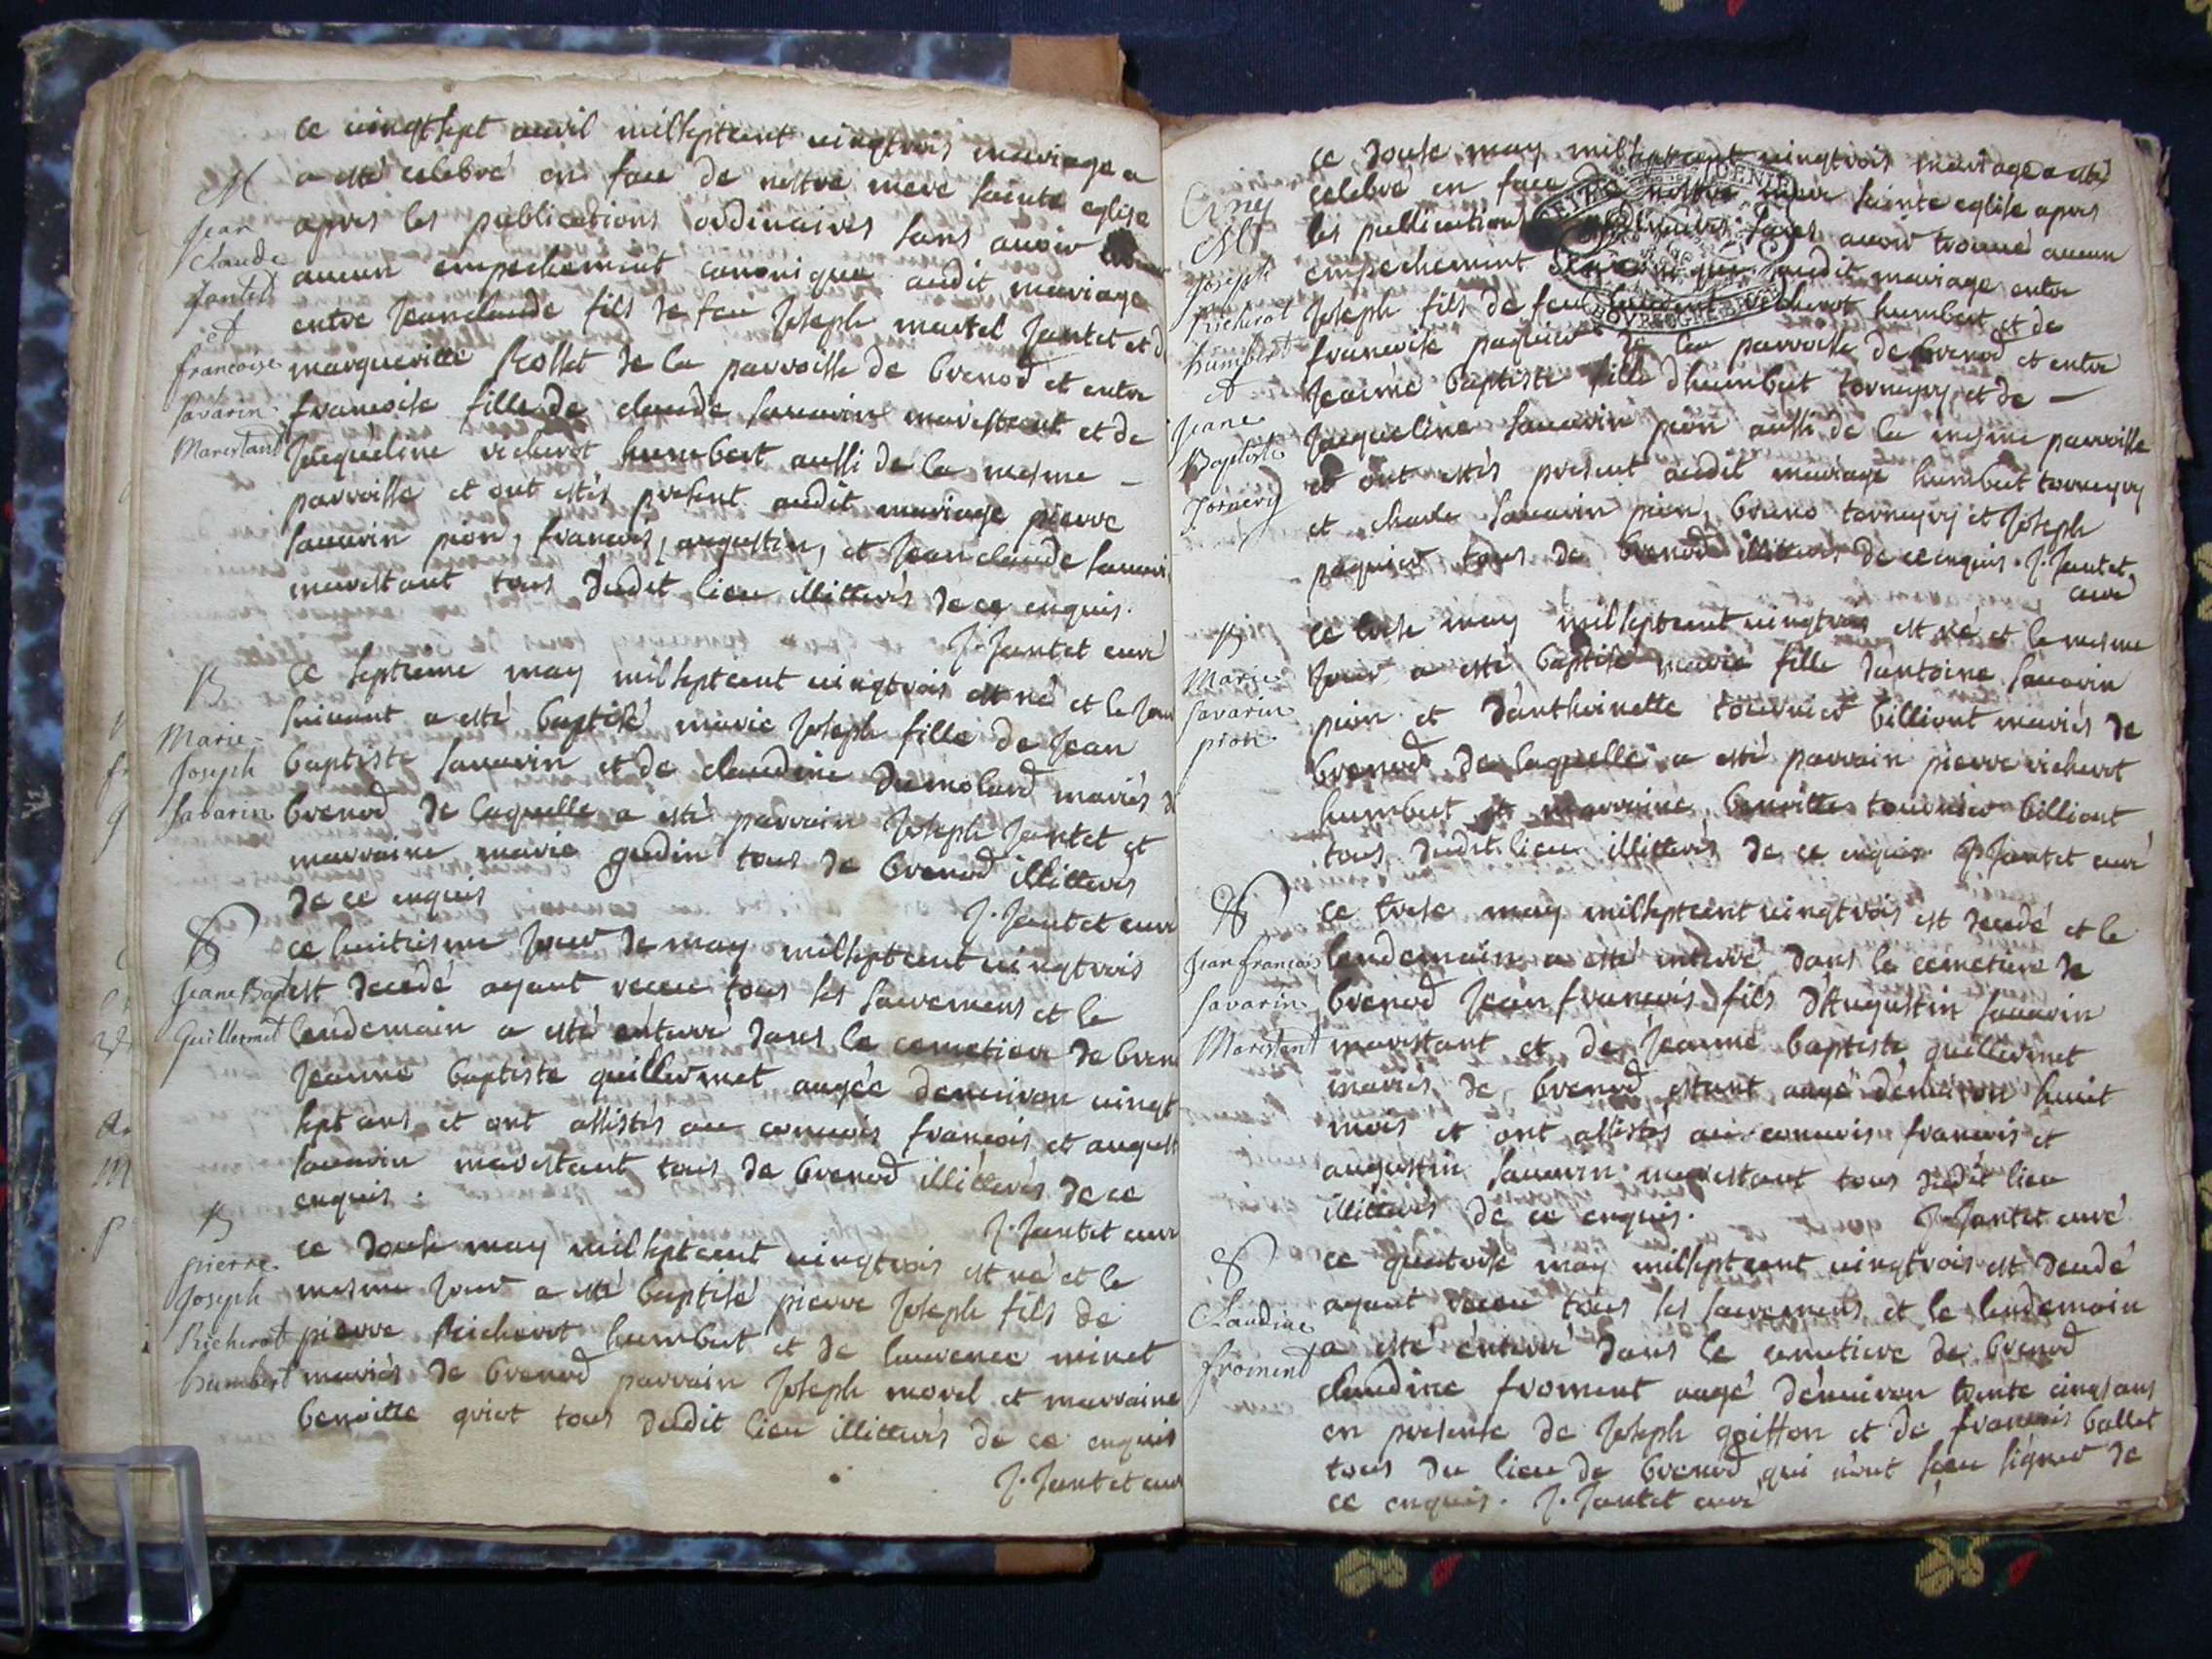 ce vingtsept avril milseptcent vingtrois mariage a
a esté celebré en face de nostre mere sainte eglise
apres les publications ordinaires sans avoir
aucun empechement canonique audit mariage
entre Jeanclaude fils de feu Joseph martel Jantet et d
margueritte Rollet de la parroisse de brenod et entre
francoise fille de claude savarin marestant et de
Jaqueline richerot humbert aussi de la mesme -
parroisse et ont estés present audit mariage pierre
savarin pion, francois, augustin, et Jean claude savari
marestant tous dudit lieu illitterés de ce enquis.
J. Jantet curé
M
Jean
Claude
Jantet
et
francoise
Savarin
Marestand
ce septieme may milseptcent vingtrois est né et le Jour
suivant a esté baptisé marie Joseph fille de Jean
baptiste savarin et de claudine dumolard mariés d
brenod de laquelle a esté parrain Joseph Jantet et
marraine marie gudin tous de brenod illitterés
de ce enquis
J. Jantet curé
B
Marie
Joseph
Savarin
ce huitiesme Jour de may milseptcent vingtrois
est decedé ayant receu tous les sacremens et le
lendemain a esté enterré dans le cemetiere de bren
Jeanne baptiste guillermet augée denviron vingt
sept ans et ont assistés au convois francois et august
savarin marestant tous de brenod illitterés de ce
enquis.
J. Jantet curé
Jeane Bapt
Guillermet
ce douse may milseptcent vingtrois est né et le
mesme Jour a esté baptisé pierre Joseph fils de
pierre Richerot humbert et de laurence minet
mariés de brenod parrain Joseph morel et marraine
benoitte griot tous dudit lieu illitterés de ce enquis
J. Jantet curé
B
pierre
Joseph
Richerot
humbert
ce douse may milseptcent vingtrois mariage a esté
celebré en face de nostre mere sainte eglise apres
les publications ordinaires sans avoir trouvé aucun
empechement canonique audit mariage entre
Joseph fils de feu richerot humbert et de
francoise paquier de la parroisse de brenod et entre
Jeanne baptiste fille dhumbert torneyry et de -
Jacqueline savarin pion aussi de la mesme parroisse
et ont estés present audit mariage humbert torneyry
et charle savarin pion, bruno torneyry et Joseph
paquier tous de brenod illitterés de ce enquis. J. Jantet
curé
M
Joseph
Richerot
humbert
et
Jeane
Baptiste
Tornery
ce treise may milseptcent vingtrois est né et le mesme
Jour a esté baptisé marie fille dantoine savarin
pion et danthoinette tournier billiont mariés de
brenod de laquelle a esté parrain pierre richerot
humbert et marraine benoitte tournier billiont
tous dudit lieu illitterés de ce enquis J. Jantet curé
B
Marie
Savarin
pion
ce treise may milseptcent vingtrois est decedé et le
lendemain a esté enterré dans le cemetiere de
brenod Jean francois fils d'Augustin savarin
marestant et de Jeanne baptiste guillermet
mariés de brenod estant augé denviron huit
mois et ont assistés au convois francois et
augustin savarin marestant tous dudit lieu
illitterés de ce enquis.
J. Jantet curé
Jean francois
Savarin
Marestant
ce quatorse may milseptcent vingtrois est decedé
ayant receu tous les sacremens et le lendemain
a esté enterré dans le cemetiere de brenod
claudine froment augé denviron trente cinq ans
en presense de Joseph goiffon et de francois ballet
tous du lieu de brenod qui n'ont sceu signer de
ce enquis. J. Jantet curé
Claudine
froment